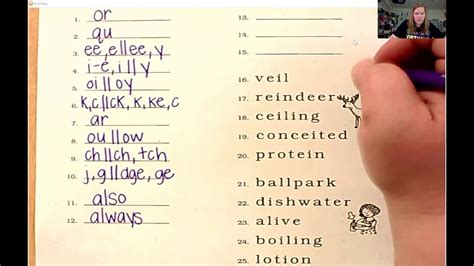 1. or
2. qu
3. ee, e||ee, y
4. i-e, i||y
5. oi||oy
6. k, c||ck, k, ke, c
7. ar
8. ou||ow
9. ch||ch, tch
10. j, g||dge, ge
11. also
12. always
13.
14.
15.
16. veil
17. reindeer
18. ceiling
19. conceited
20. protein
21. ballpark
22. dishwater
23. alive
24. boiling
25. lotion